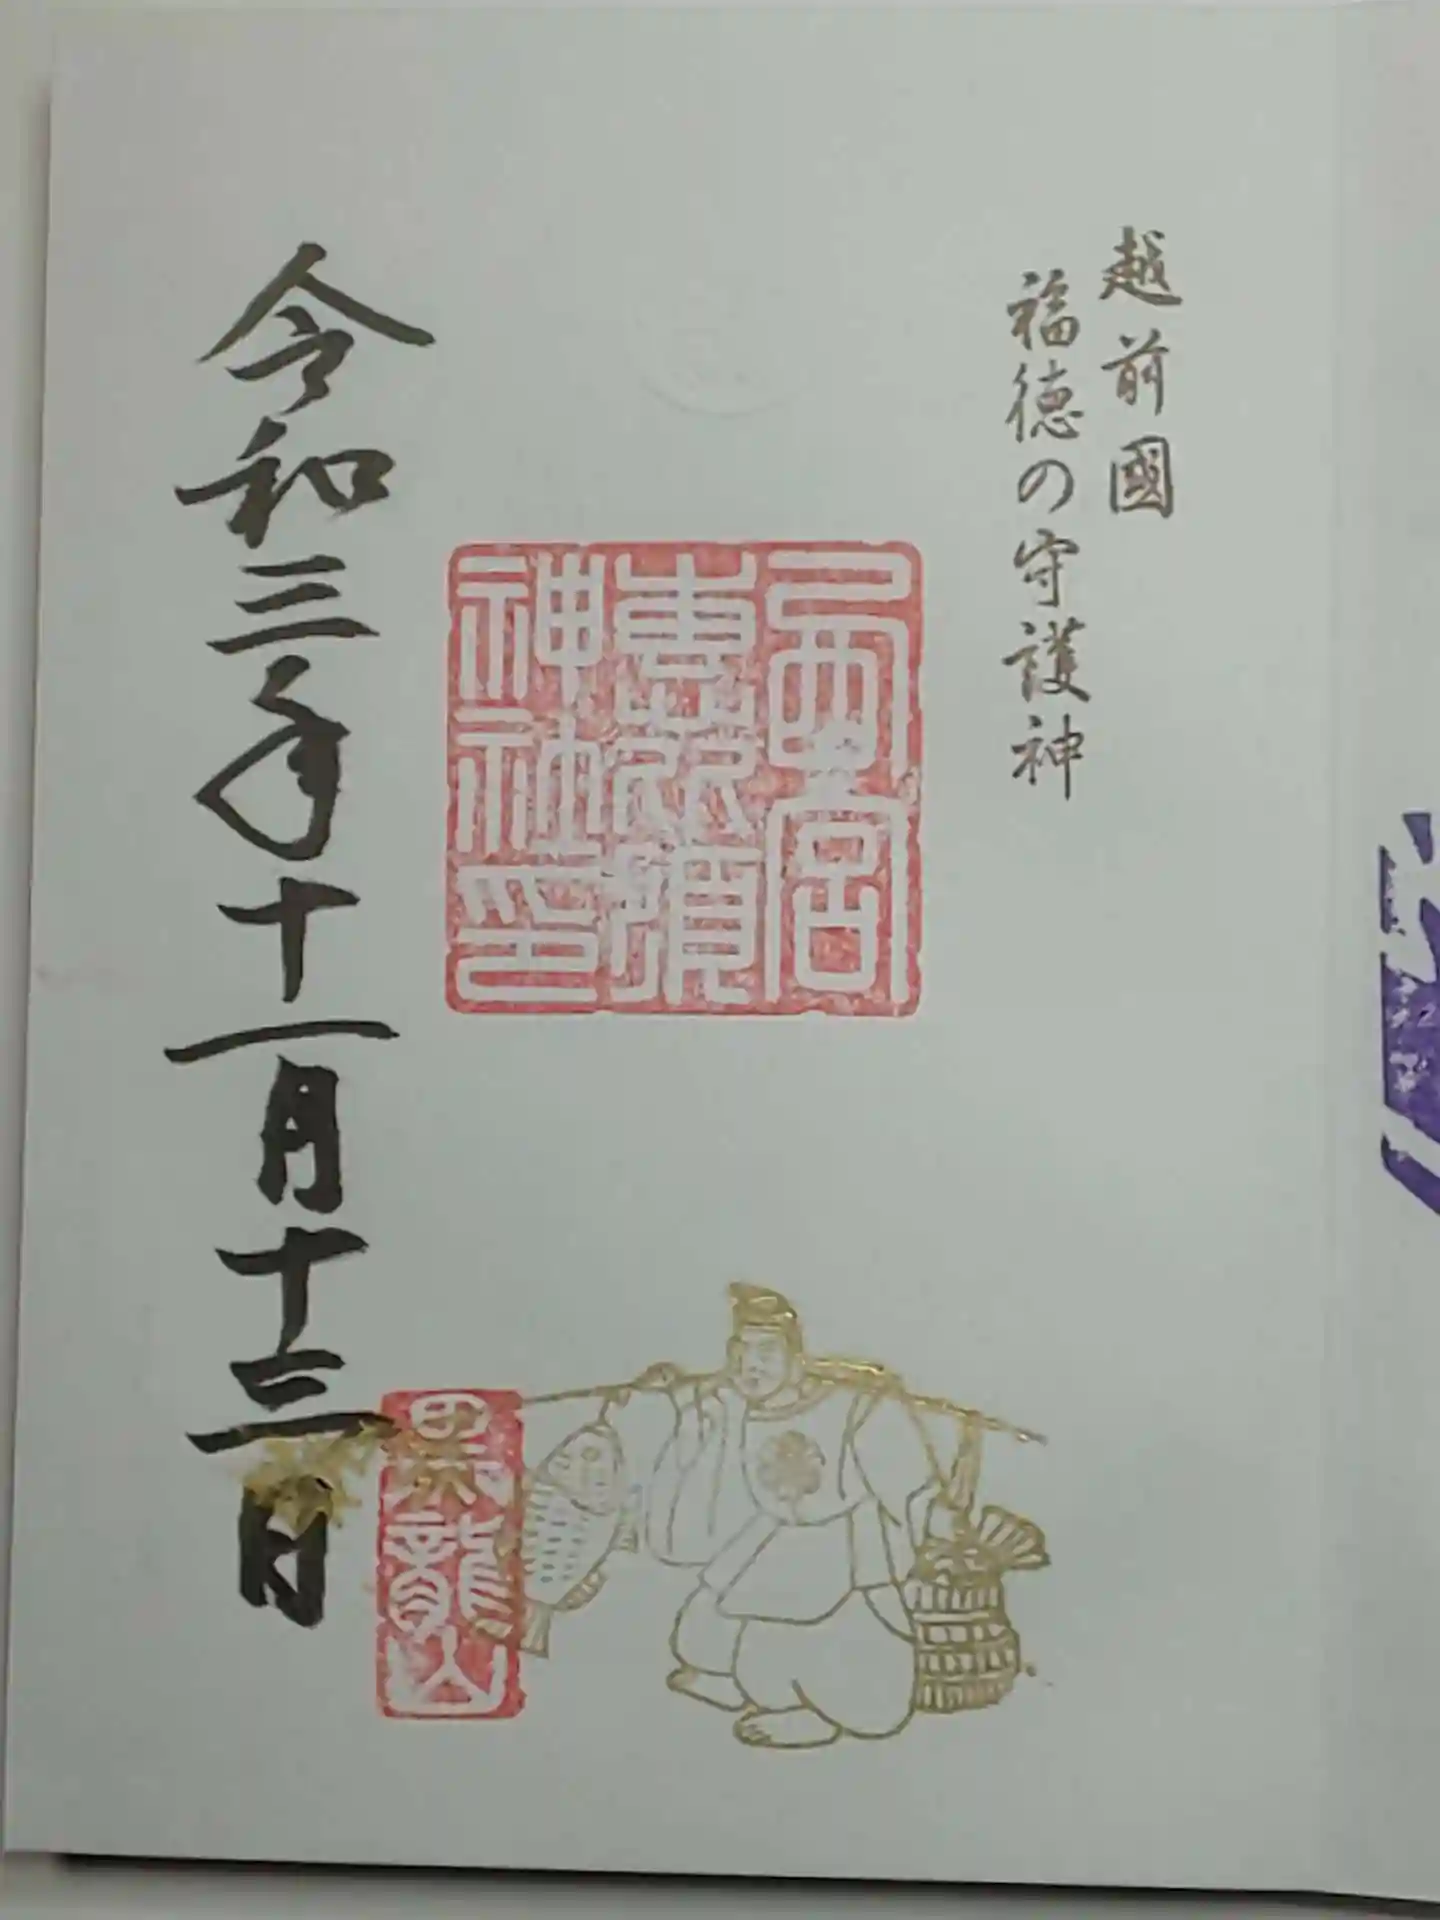 越前國
福徳の守護神
西宮
恵比須
神社印
令和三年十一月十三日
黒龍山